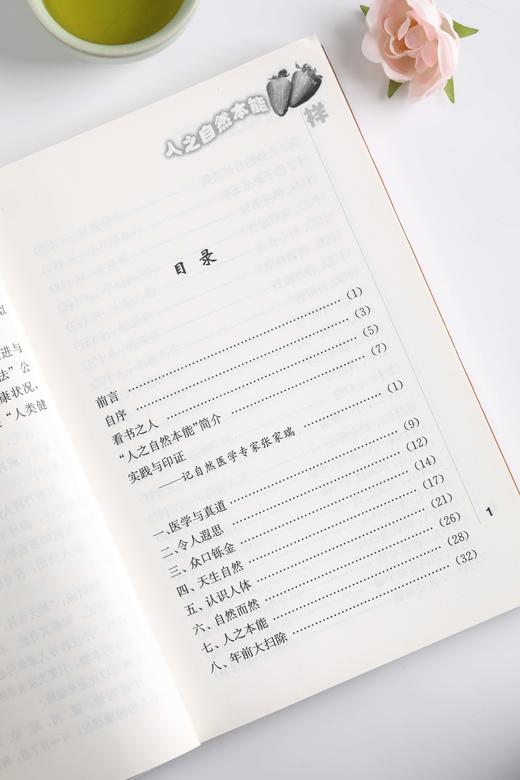 人之自然本能
样
目录
前言 ……………………………… (1)
自序 ……………………………… (3)
看书之人 ……………………………… (5)
“人之自然本能”简介 ……………………………… (7)
实践与印证
——记自然医学专家张家瑞 ……………………………… (1)
一、医学与真道 ……………………………… (9)
二、令人遐思 ……………………………… (12)
三、众口铄金 ……………………………… (14)
四、天生自然 ……………………………… (17)
五、认识人体 ……………………………… (21)
六、自然而然 ……………………………… (26)
七、人之本能 ……………………………… (28)
八、年前大扫除 ……………………………… (32)
1
进与
法”公
康状况，
“人类健